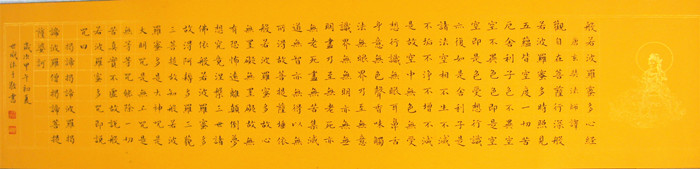 般若波羅蜜多心經
唐玄奘法師譯
觀自在菩薩行深般
若波羅蜜多時照見
五蘊皆空度一切苦
厄舍利子色不異空
空不異色色即是空
空即是色受想行識
亦復如是舍利子是
諸法空相不生不滅
不垢不淨不增不減
是故空中無色無受
想行識無眼耳鼻舌
身意無色聲香味觸
法無眼界乃至無意
識界無無明亦無無
明盡乃至無老死亦
無老死盡無苦集滅
道無智亦無得以無
所得故菩提薩埵依
般若波羅蜜多故心
無罣礙無罣礙故無
有恐怖遠離顛倒夢
想究竟涅槃三世諸
佛依般若波羅蜜多
故得阿耨多羅三藐
三菩提故知般若波
羅蜜多是大神咒是
大明咒是無上咒是
無等等咒能除一切
苦真實不虛故說般
若波羅蜜多咒即說
咒曰
揭諦揭諦波羅揭
諦波羅僧揭諦菩提
薩婆訶
歲次甲午初夏
沐手敬書